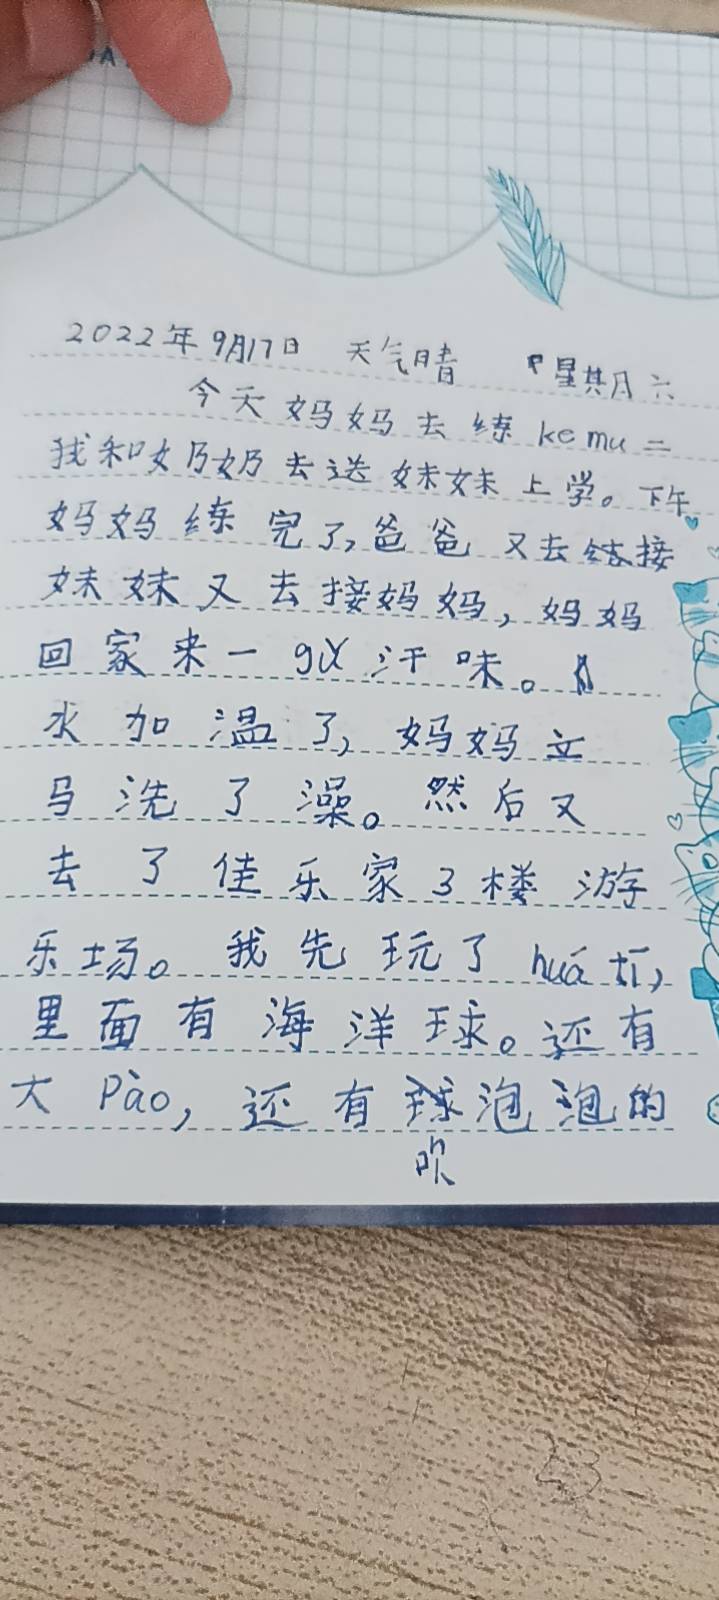 2022年9月17日 天气晴 星期六
今天妈妈去练ke mu二
我和奶奶去送妹妹上学。下午
妈妈练完了,爸爸又去接
妹妹又去接妈妈,妈妈
回家来一gǔ汗味。
水加温了,妈妈立
马洗了澡。然后又
去了佳乐家3楼游
乐场。我先玩了huá tī,
里面有海洋球。还有
大Pào,还有泡泡的
吹